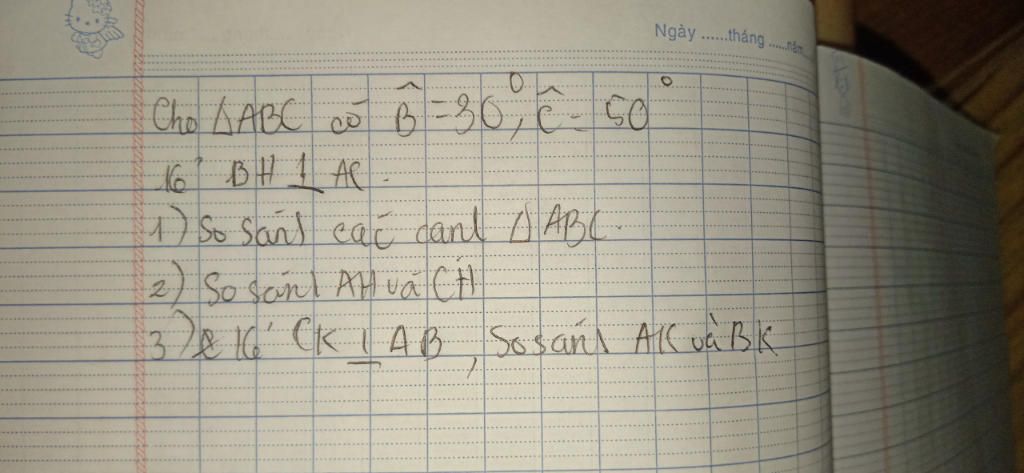 Ngày ......tháng ......năm
Cho ΔABC có B̂ = 30°, Ĉ = 50°
Kẻ BH ⊥ AC.
1) So sánh các cạnh ΔABC.
2) So sánh AH và CH
3) Kẻ CK ⊥ AB, So sánh AK và BK